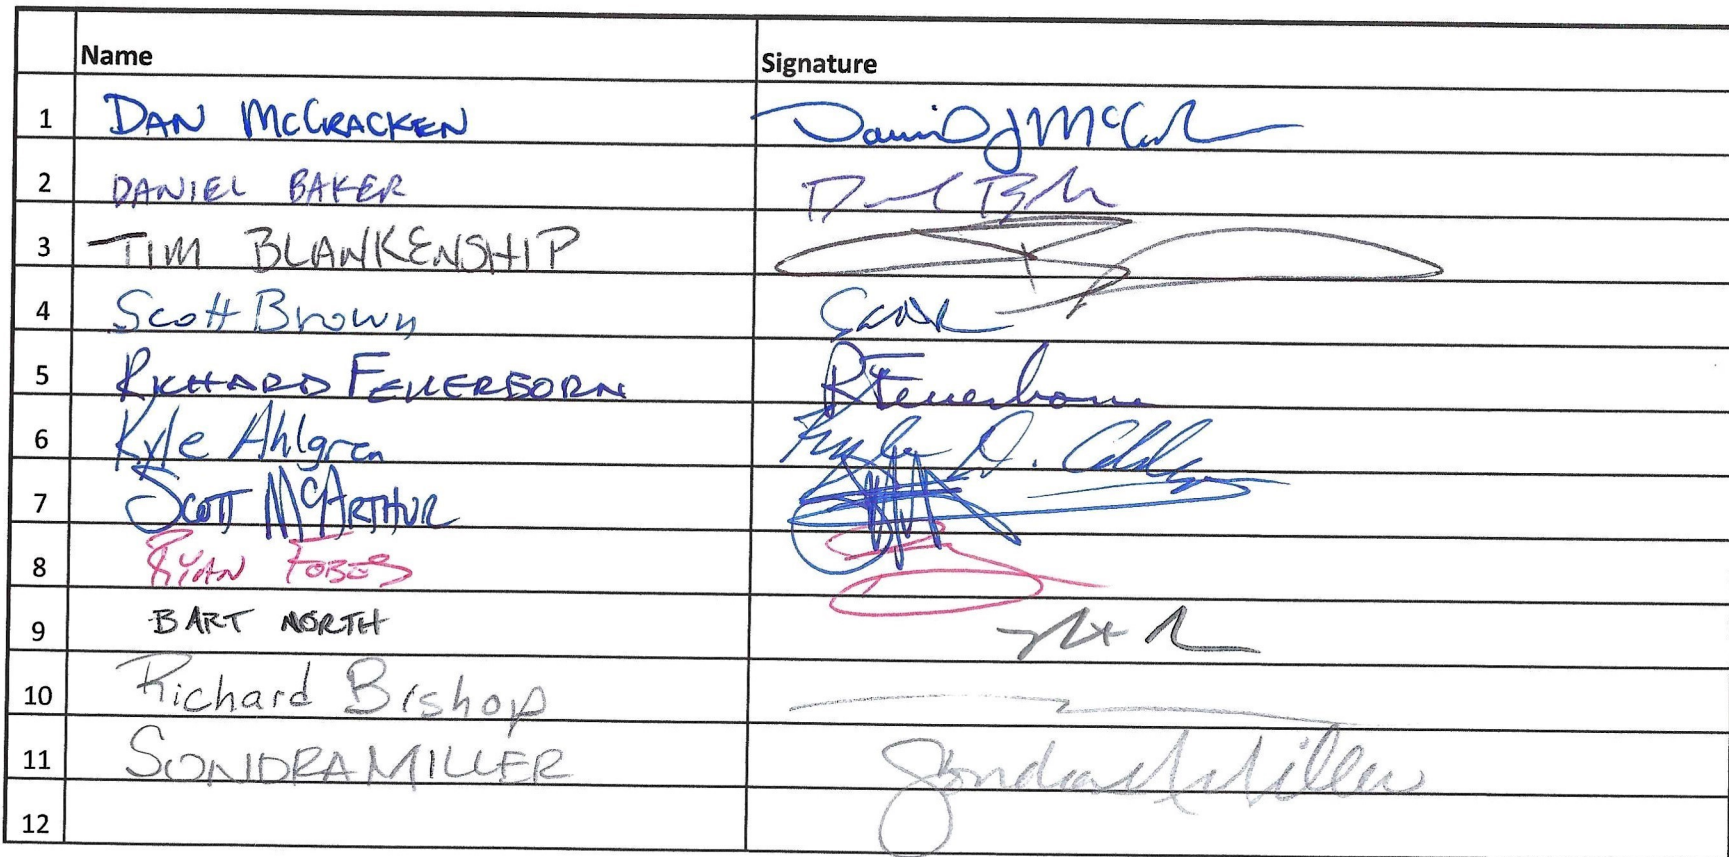 Name Signature
1 DAN MCCRACKEN Daniel J McCrk
2 DANIEL BAKER
3 TIM BLANKENSHIP
4 Scott Brown
5 RICHARD FEUERBORN RFeuerborn
6 Kyle Ahlgren
7 SCOTT MCARTHUR
8 RYAN FOBES
9 BART NORTH
10 Richard Bishop
11 SONDRA MILLER Sondra Miller
12